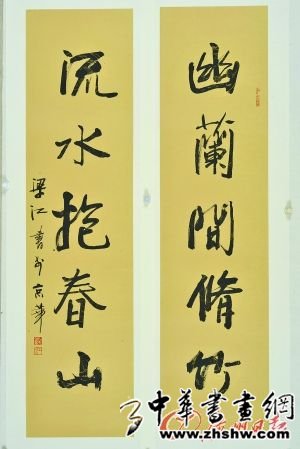 幽蘭間脩竹
流水抱春山
梁江書於京華
中华書畫網
www.zhshw.com